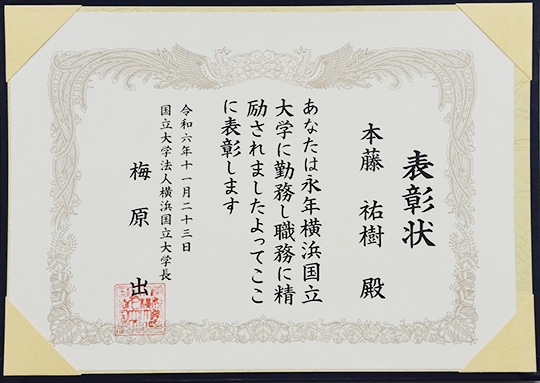 表彰状
本藤 祐樹 殿
あなたは永年横浜国立
大学に勤務し職務に精
励されましたよってここ
に表彰します
令和六年十一月二十三日
国立大学法人横浜国立大学長
梅原 出